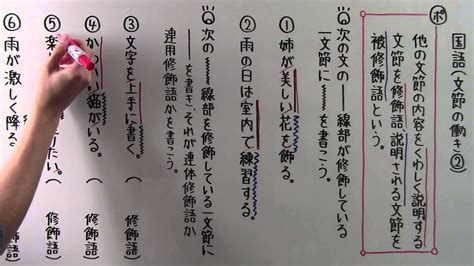 国語(文節の働き②)
ポ 他の文節の内容をくわしく説明する
文節を修飾語、説明される文節を
被修飾語という。
Q 次の文の 線部が修飾している
一文節に を書こう。
① 姉が美しい花を飾る。
② 雨の日は室内で練習する。
Q 次の 線部を修飾している一文節に
を書き、それが連体修飾語か
連用修飾語かを書こう。
③ 文字を上手に書く。( 修飾語)
④ 猫がいる。( 修飾語)
⑤ 楽 たい。( 修飾語)
⑥ 雨が激しく降る( 修飾語)